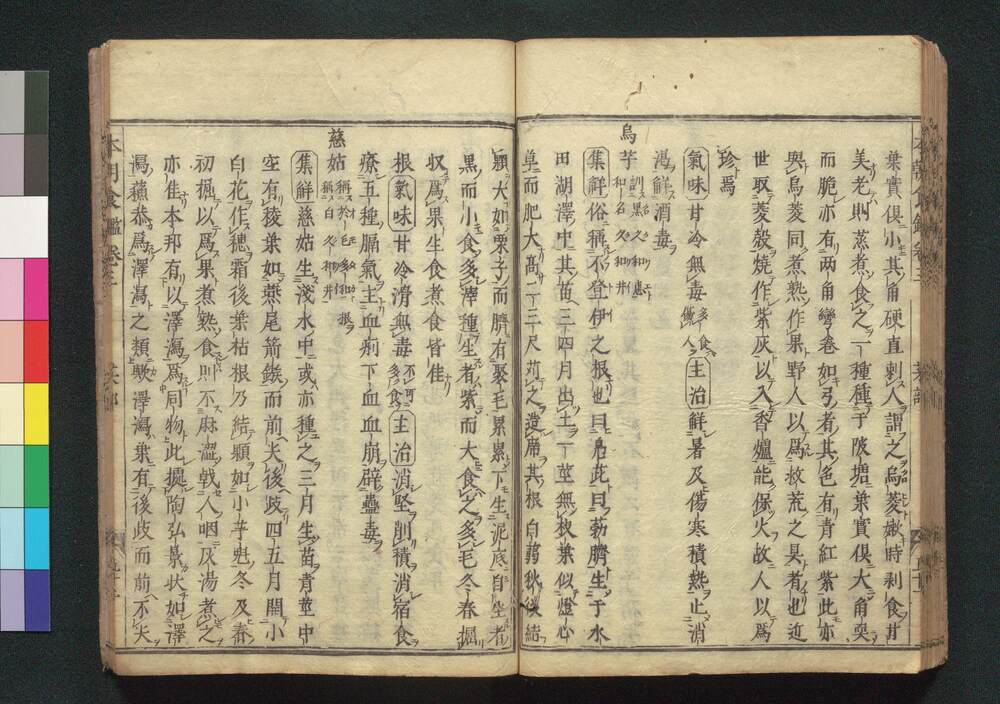 葉實俱小其角硬直刺人謂之烏菱嫩時剥食甘
美老則蒸煮食之一種種于陂塘葉實俱大角耎
而脆亦有兩角彎卷如弓者其色有青紅紫此亦
與烏菱同煮熟作果野人以爲救荒之具者也近
世取菱殼燒作紫灰以入香爐能保火故人以爲
珍焉
氣味甘冷無毒多食傷人主治解暑及傷寒積熱止消
渴解酒毒
烏芋訓黒久和惠和名久和井
集解俗稱不登伊之根也曰鳧茈曰葧臍生于水
田湖澤中其苗三四月出土一莖無枝葉似燈心
草而肥大高二三尺苅之造席其根白蒻秋後結
顆大如栗子而臍有聚毛累累下生泥底自生者
黒而小食多滓種生者紫而大食之多毛冬春掘
収爲果生食煮食皆佳
根氣味甘冷滑無毒不可多食主治消堅削積消宿食
療五種膈氣主血痢下血血崩辟蠱毒
慈姑
集解慈姑生淺水中或亦種之三月生苗青莖中
空有稜葉如燕尾箭鏃而前尖後歧四五月開小
白花作穗霜後葉枯根乃結顆如小芋魁冬及春
初掘以爲果煮熟食則不麻澀戟人咽灰湯煮之
亦佳本邦有以澤瀉爲同物此據陶弘景狀如澤
瀉蘓恭爲澤瀉之類歟澤瀉葉有後歧而前不尖
本朝食鑑卷三